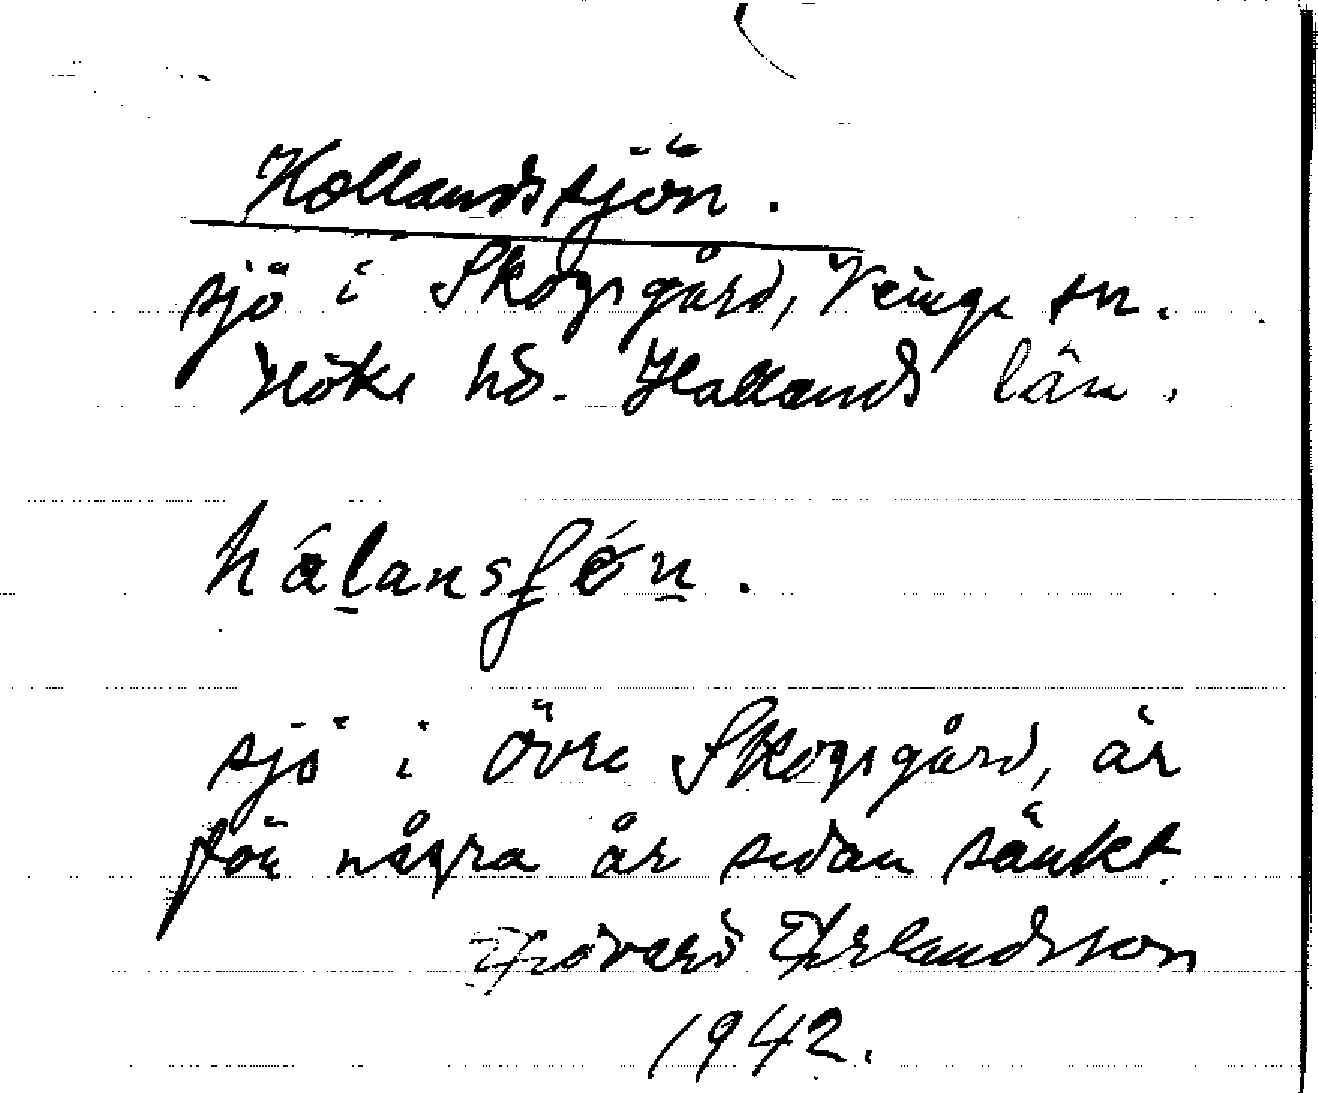 Hollandssjön.
sjö i Skogsgård, Veinge sn.
Höks hd. Hallands län.
hálansʃǿn.
sjö i Övre Skogsgård, är
för några år sedan sänkt.
Edvard Erlandsson
1942.